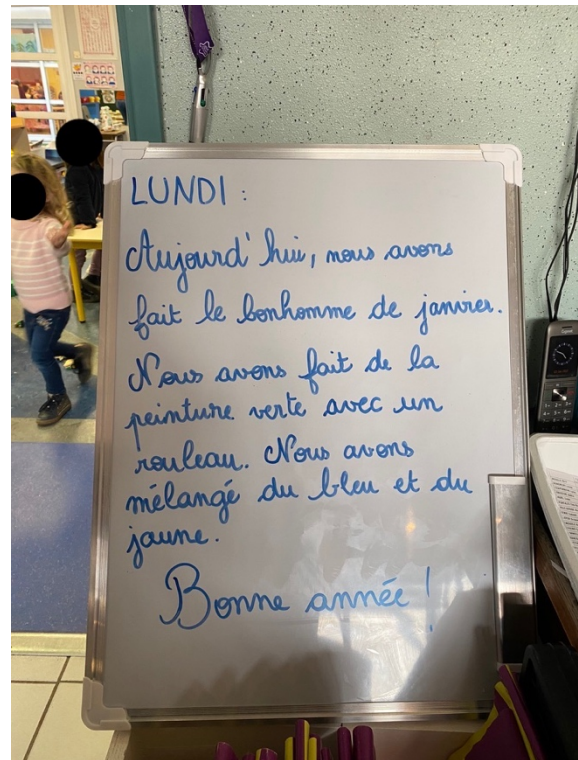 LUNDI :
Aujourd'hui, nous avons
fait le bonhomme de janvier.
Nous avons fait de la
peinture verte avec un
rouleau. Nous avons
mélangé du bleu et du
jaune.
Bonne année !